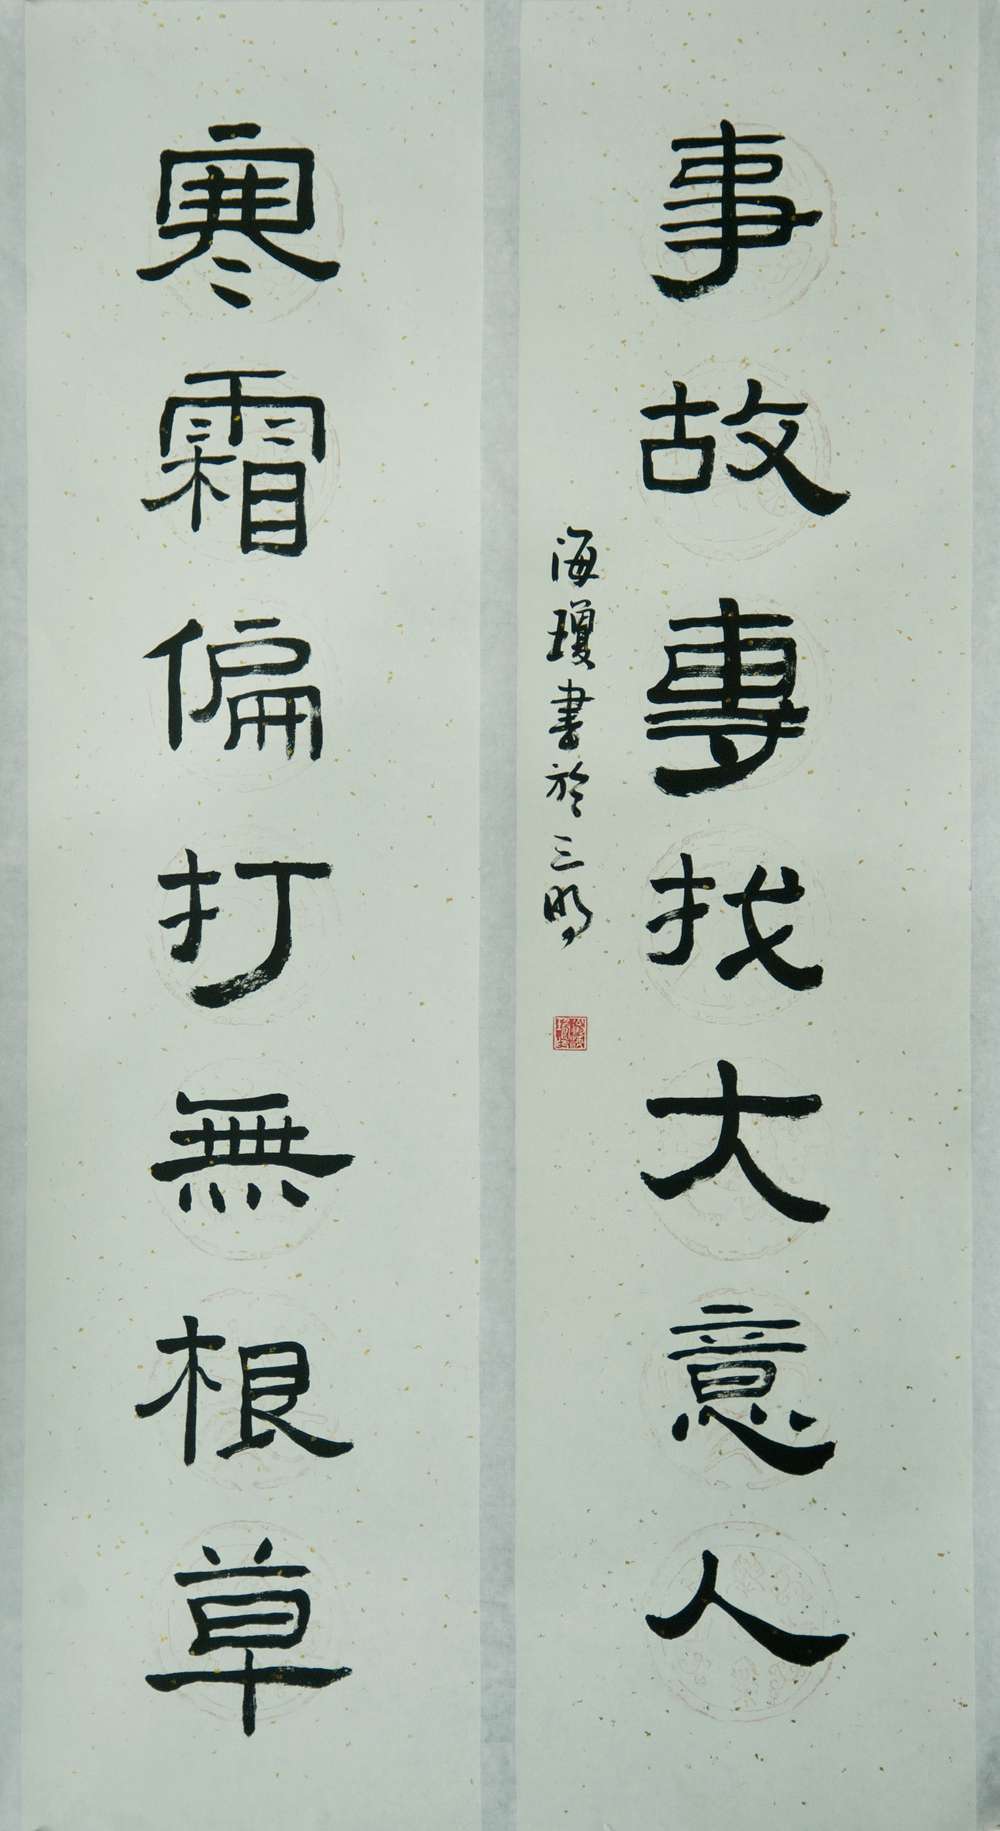 寒霜偏打無根草
事故專找大意人
海瓊書於三明